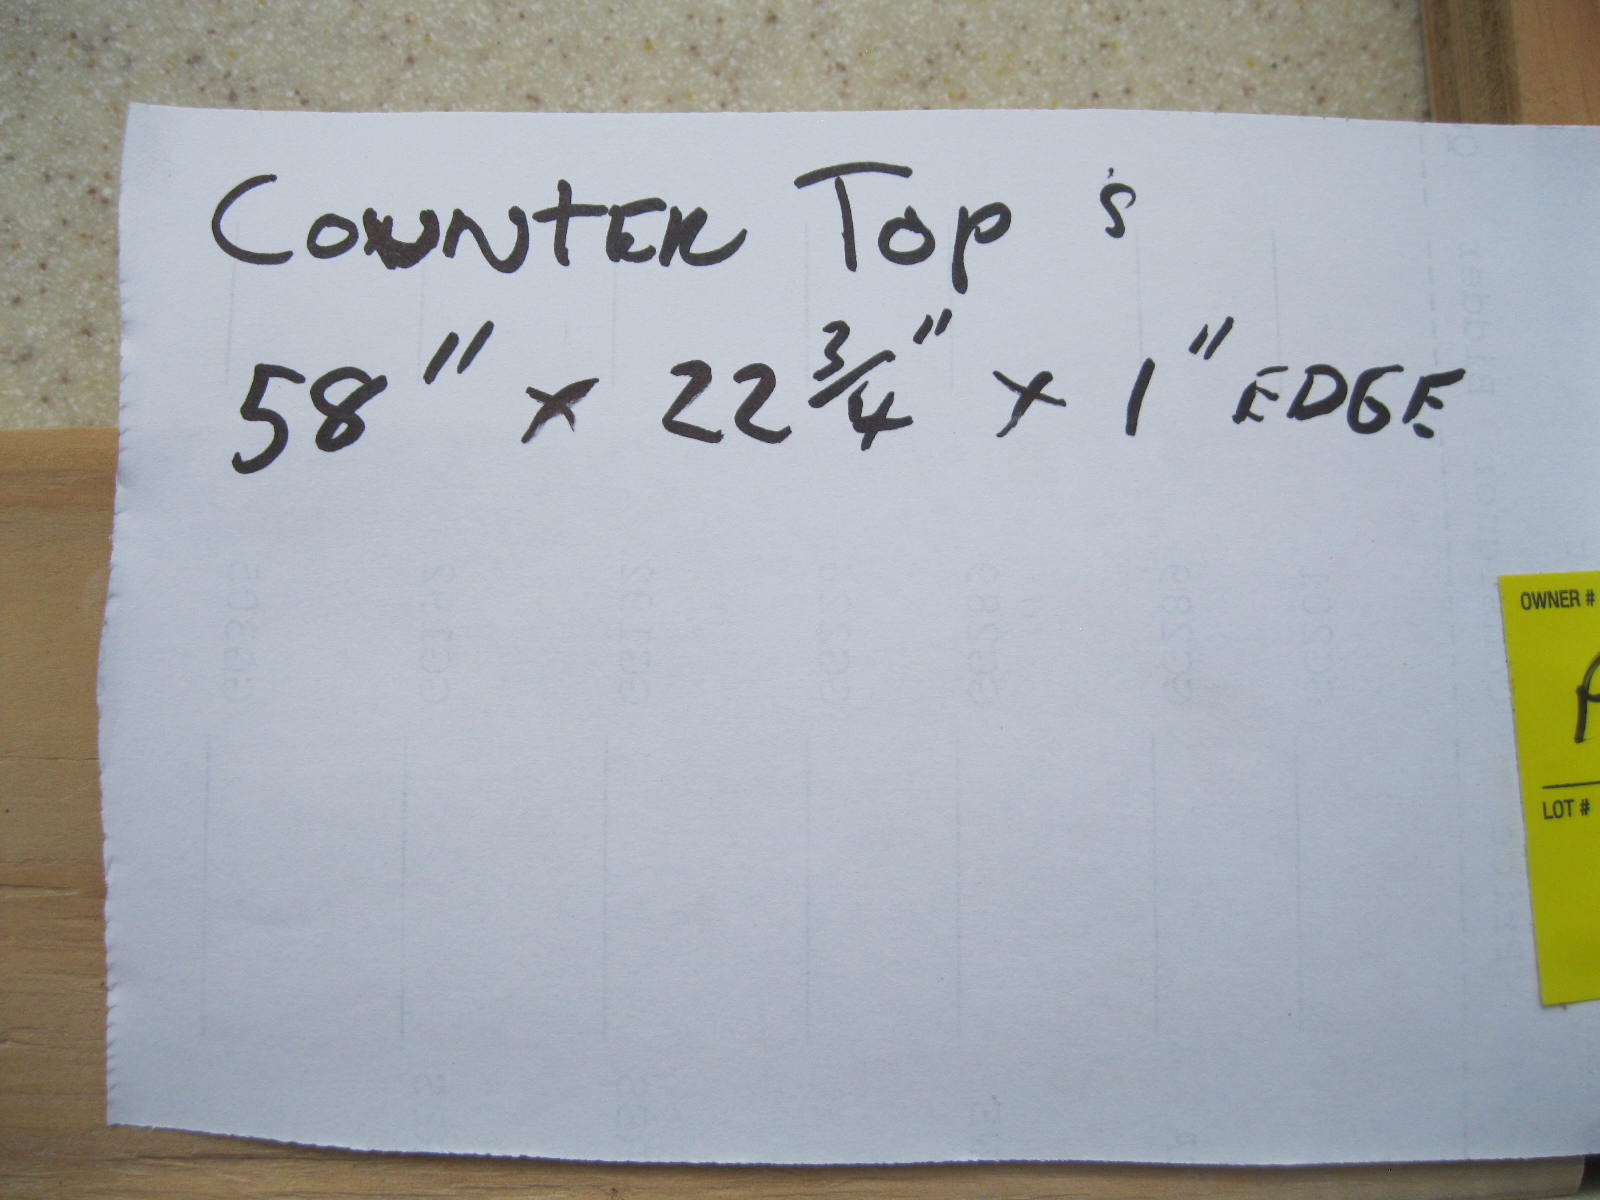 COUNTER TOP's
58" x 22 3/4" x 1" EDGE
OWNER #
LOT #